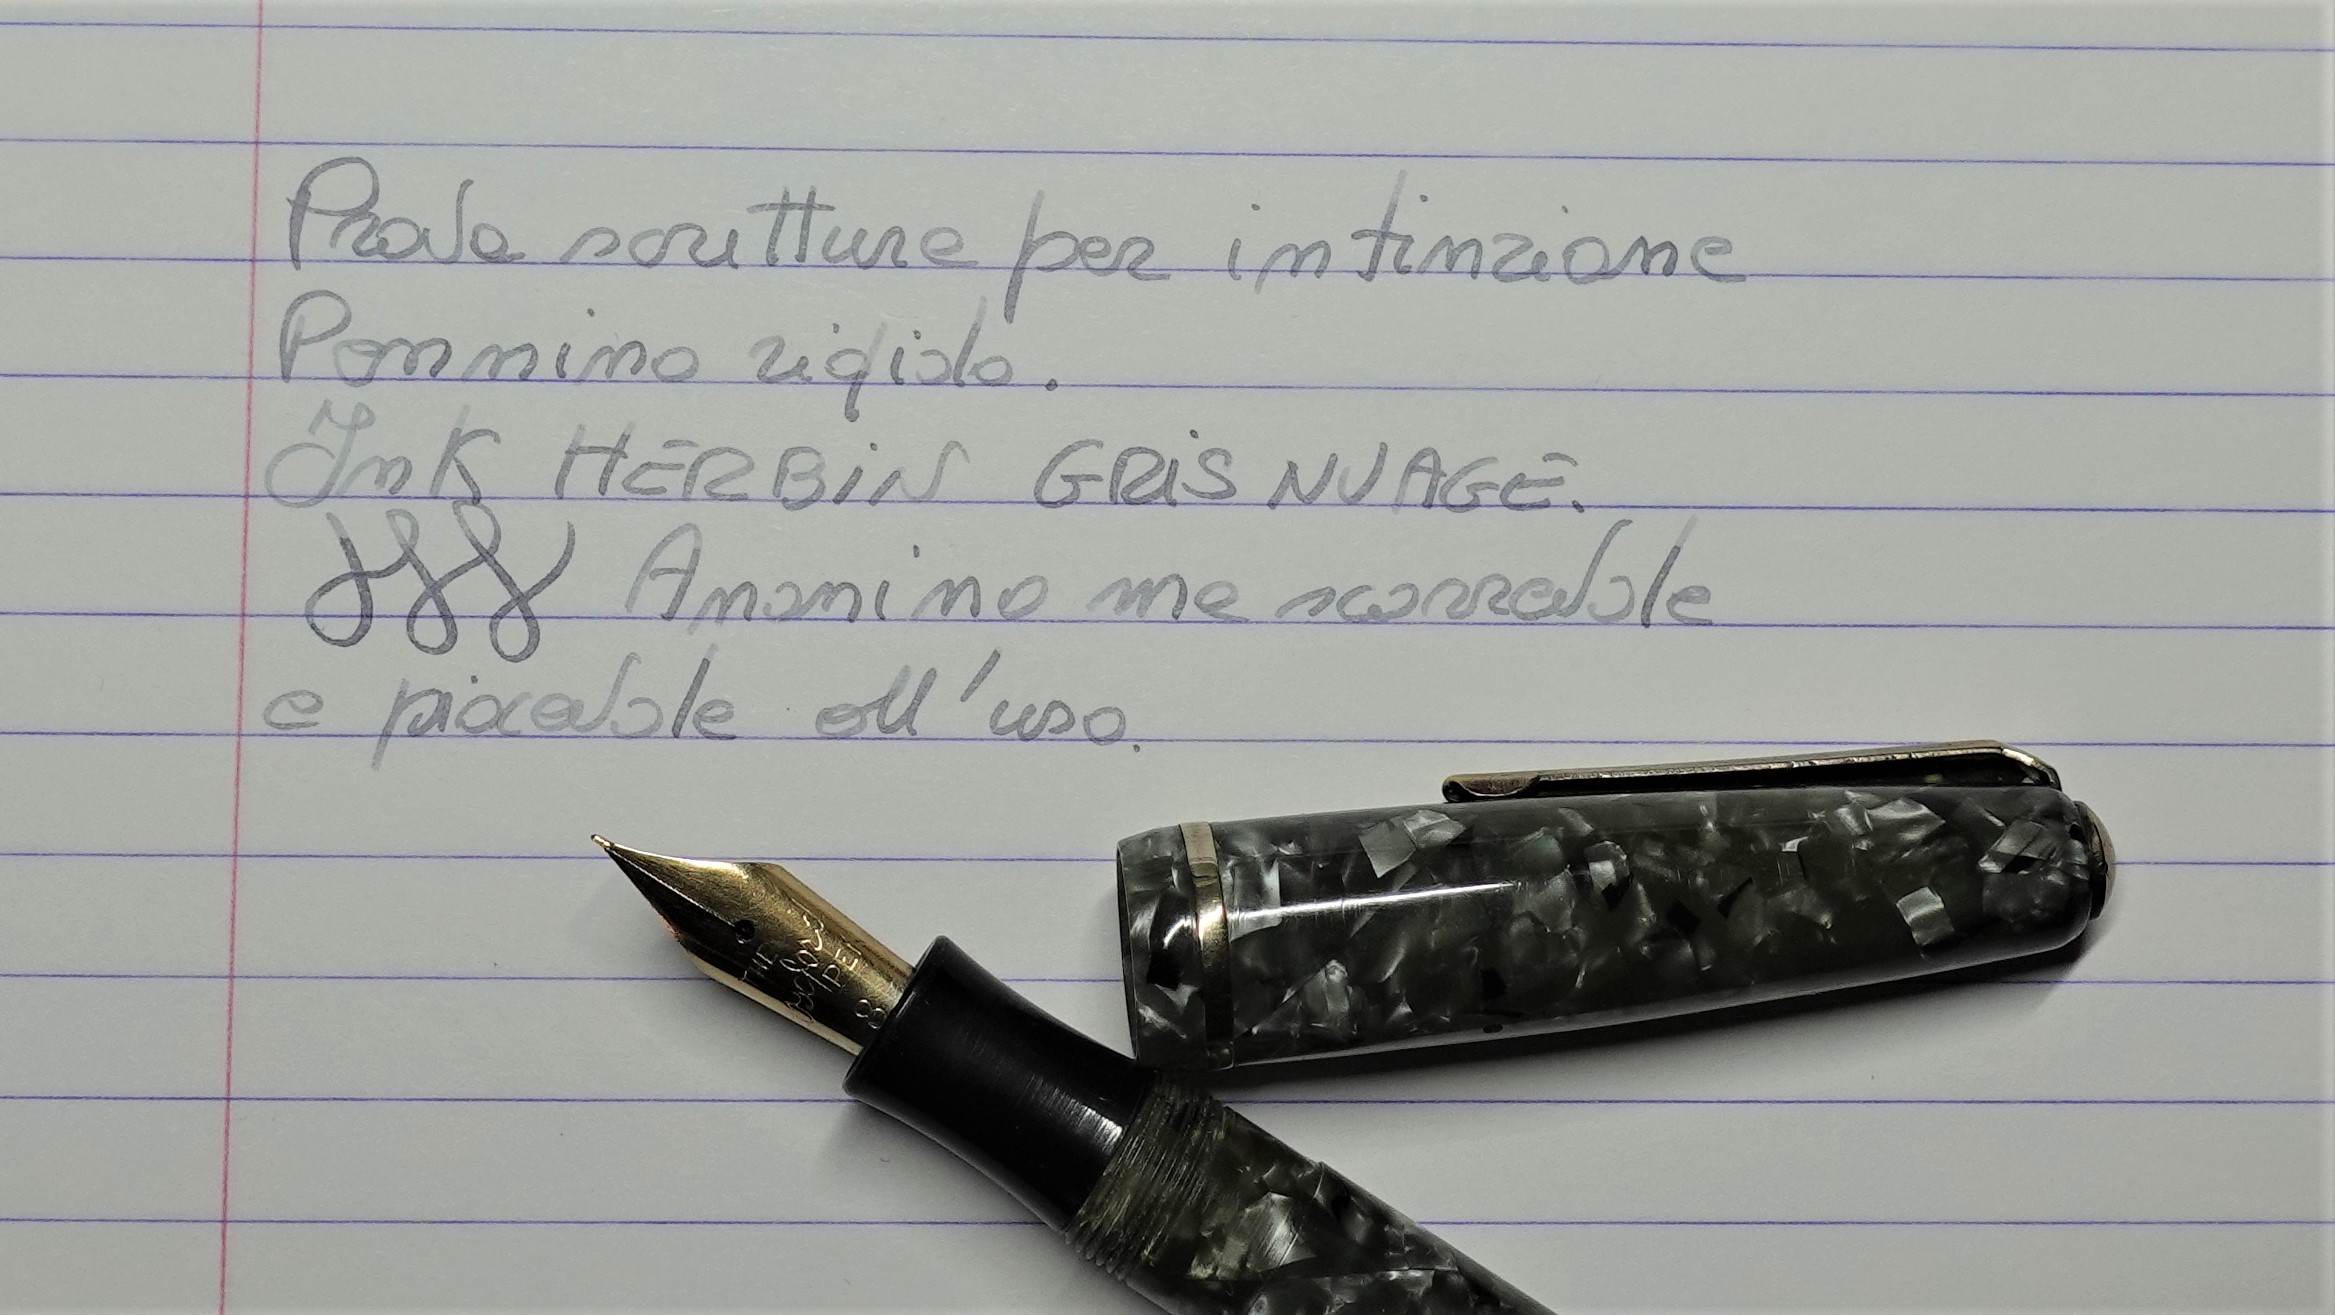 Prova scritture per intinzione
Pennino rigido.
Ink HERBIN GRIS NUAGE.
Anonimo ma scorrevole
e piacevole all'uso.
THE
PEN
8